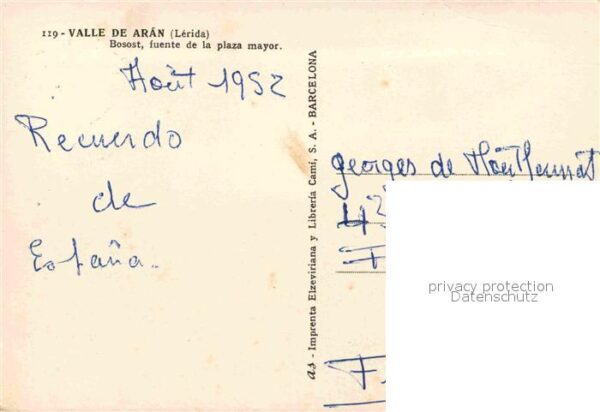 119 - VALLE DE ARÁN (Lérida)
Bosost, fuente de la plaza mayor.
Août 1952
Recuerdo
de
España.
as - Imprenta Elzeviriana y Librería Camí, S. A. - BARCELONA
georges de
privacy protection
Datenschutz